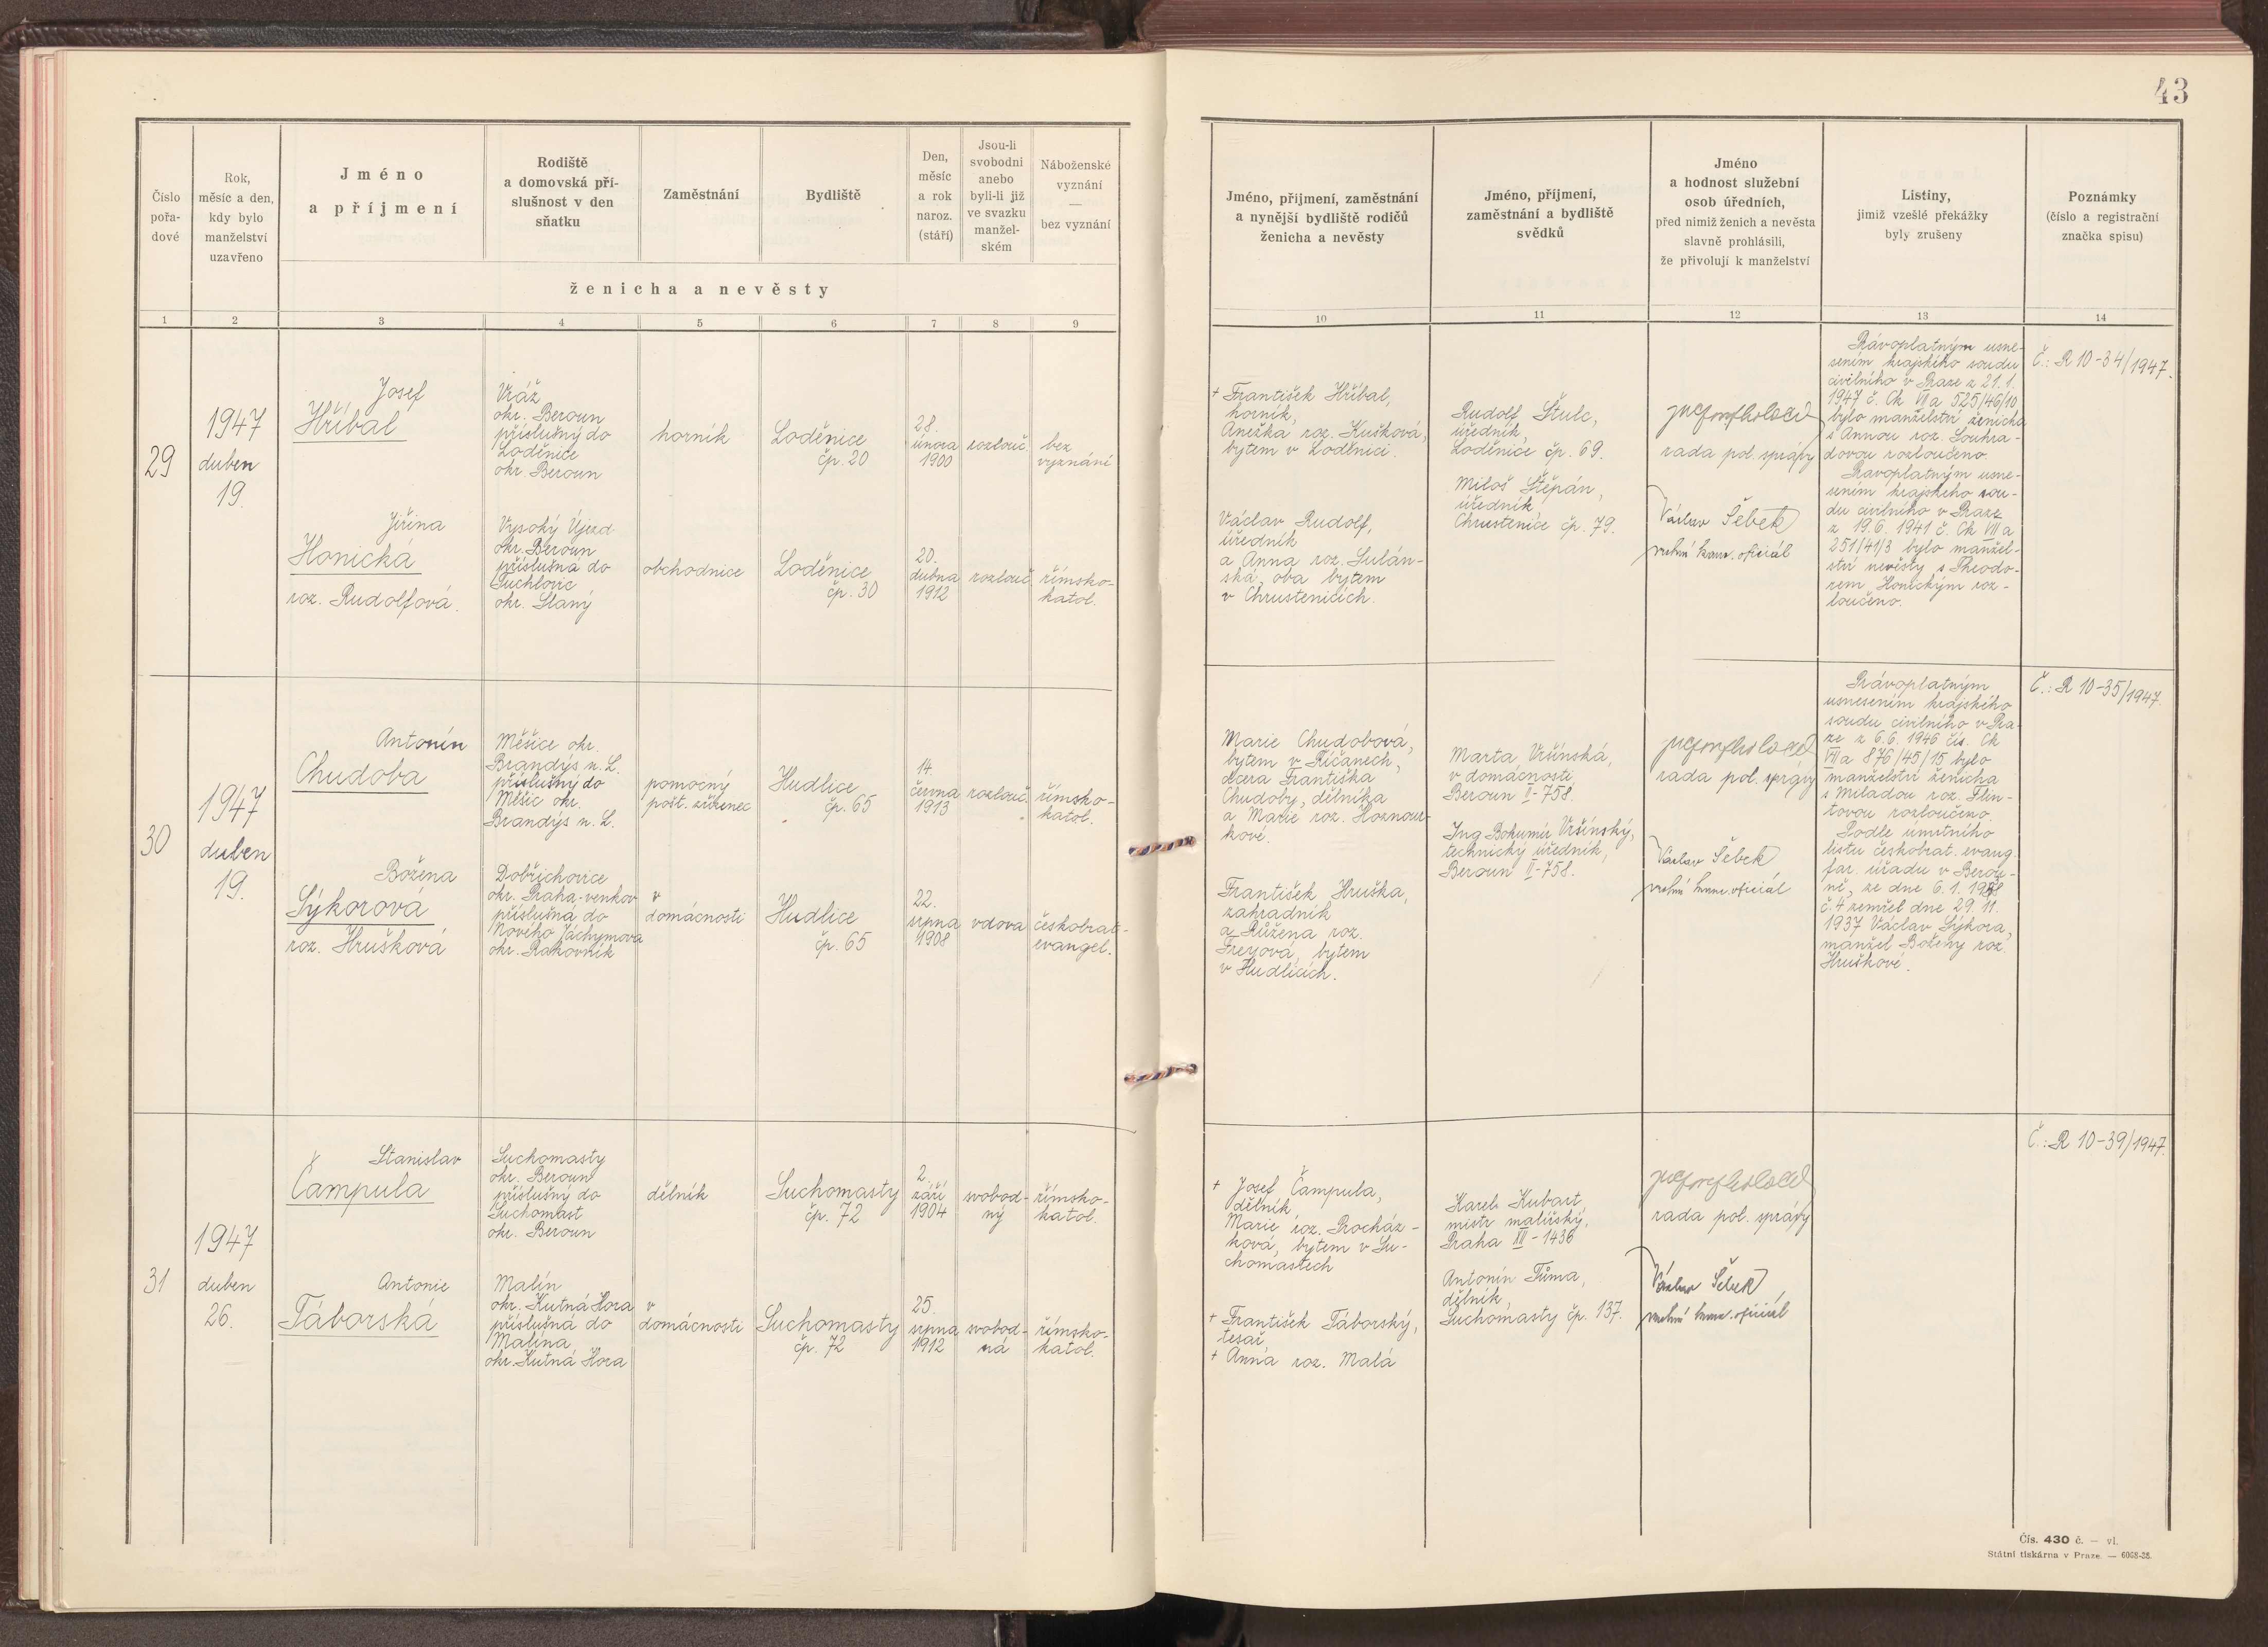 43
Číslo
pořa-
dové
Rok,
měsíc a den,
kdy bylo
manželství
uzavřeno
Jméno
a příjmení
Rodiště
a domovská pří-
slušnost v den
sňatku
Zaměstnání
Bydliště
Den,
měsíc
a rok
naroz.
(stáří)
Jsou-li
svobodni
anebo
byli-li již
ve svazku
manžel-
ském
Náboženské
vyznání
—
bez vyznání
ženicha a nevěsty
Jméno, příjmení, zaměstnání
a nynější bydliště rodičů
ženicha a nevěsty
Jméno, příjmení,
zaměstnání a bydliště
svědků
Jméno
a hodnost služební
osob úředních,
před nimiž ženich a nevěsta
slavně prohlásili,
že přivolují k manželství
Listiny,
jimiž vzešlé překážky
byly zrušeny
Poznámky
(číslo a registrační
značka spisu)
1 2 3 4 5 6 7 8 9 10 11 12 13 14
29
1947
duben
19.
Josef
Hříbal
Vráž
okr. Beroun
příslušný do
Loděnice
okr. Beroun
horník
Loděnice
čp. 20
28.
února
1900
rozlouč.
bez
vyznání
Jiřina
Honická
roz. Rudolfová.
Vysoký Újezd
okr. Beroun
příslušná do
Tuchlovic
okr. Slaný
obchodnice
Loděnice
čp. 30
20.
dubna
1912
rozlouč.
římsko-
katol.
+ František Hříbal,
horník,
Anežka roz. Kušková,
bytem v Loděnici.
Václav Rudolf,
úředník
a Anna roz. Sulán-
ská, oba bytem
v Chrustenicích.
Rudolf Štulc,
úředník,
Loděnice čp. 69.
Miloš Štěpán,
úředník
Chrustenice čp. 79.
rada pol. správy
Václav Šebek
vrchní kanc. oficiál
Právoplatným usne-
sením krajského soudu
civilního v Praze z 21.1.
1947 č. Ck VIIa 525/46/10
bylo manželství ženicha
s Annou roz. Souhra-
dovou rozloučeno.
Pravoplatným usne-
sením krajského sou-
du civilního v Praze
z 19.6. 1941 č. Ck VIIa
251/41/3 bylo manžel-
ství nevěsty s Theodo-
rem Honickým roz-
loučeno.
Č.: R 10-34/1947.
30
1947
duben
19.
Antonín
Chudoba
Měšice okr.
Brandýs n. L.
příslušný do
Měšic okr.
Brandýs n. L.
pomocný
pošt. zřízenec
Hudlice
čp. 65
14.
června
1913
rozlouč.
římsko-
katol.
Božena
Sýkorová
roz. Hrušková
Dobřichovice
okr. Praha-venkov
příslušná do
Nového Jáchymova
okr. Rakovník
v
domácnosti
Hudlice
čp. 65
22.
srpna
1908
vdova
českobrat-
evangel.
Marie Chudobová,
bytem v Říčanech,
dcera Františka
Chudoby, dělníka
a Marie roz. Hoznour-
kové.
František Hruška,
zahradník
a Růžena roz.
Freyová, bytem
v Hudlicích.
Marta Vršínská,
v domácnosti,
Beroun II-758.
Ing Bohumír Vršínský,
technický úředník,
Beroun II-758.
rada pol. správy
Václav Šebek
vrchní kanc. oficiál
Právoplatným
usnesením krajského
soudu civilního v Pra-
ze z 6.6. 1946 čís. Ck
VIIa 876/45/15 bylo
manželství ženicha
s Miladou roz. Flin-
tovou rozloučeno.
Podle úmrtního
listu českobrat. evang.
far. úřadu v Berou-
ně, ze dne 6.1. 1938
č. 4 zemřel dne 29.11.
1937 Václav Sýkora,
manžel Boženy roz.
Hruškové.
Č.: R 10-35/1947.
31
1947
duben
26.
Stanislav
Čampula
Suchomasty
okr. Beroun
příslušný do
Suchomast
okr. Beroun
dělník
Suchomasty
čp. 72
2.
září
1904
svobod-
ný
římsko-
katol.
Antonie
Táborská
Malín
okr. Kutná Hora
příslušná do
Malína
okr. Kutná Hora
v
domácnosti
Suchomasty
čp. 72
25.
srpna
1912
svobod-
ná
římsko-
katol.
+ Josef Čampula,
dělník
Marie roz. Procház-
ková, bytem v Su-
chomastech
+ František Táborský,
tesař
+ Anna roz. Malá
Karel Kubart
mistr malířský,
Praha XII-1436
Antonín Tůma,
dělník,
Suchomasty čp. 137.
rada pol. správy
Václav Šebek
vrchní kanc. oficiál
Č.: R 10-39/1947.
Čís. 430 č. — vl.
Státní tiskárna v Praze. — 6068-38.